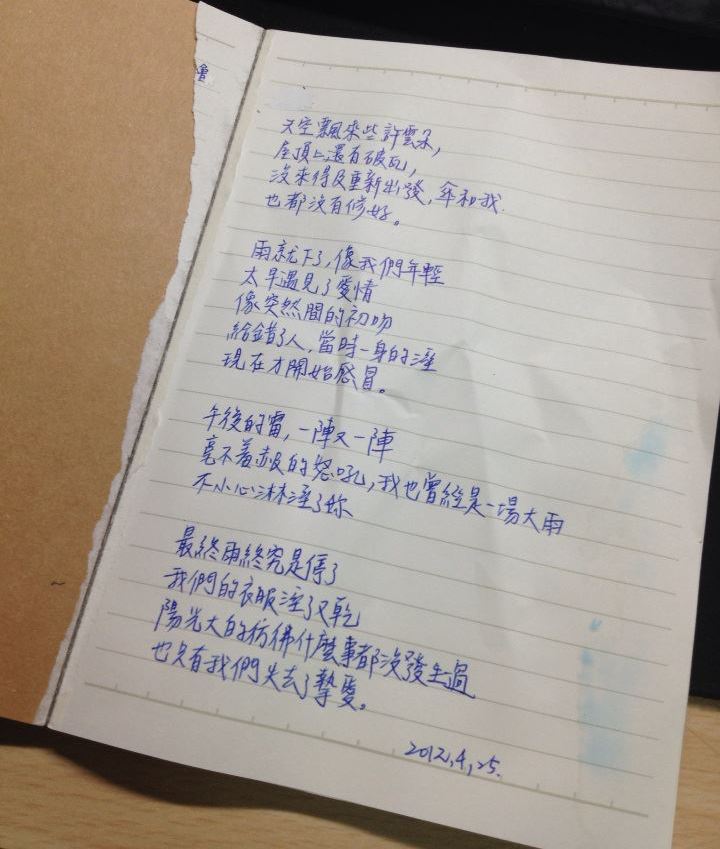 會
天空飄來些許雲朵,
屋頂上還有破瓦,
沒來得及重新出發,傘和我
也都沒有修好。
雨就下了,像我們年輕
太早遇見了愛情
像突然間的初吻
給錯了人,當時一身的溼
現在才開始感冒。
午後的雷,一陣又一陣
毫不羞赧的怒吼,我也曾經是一場大雨
不小心淋溼了妳
最終雨終究是停了
我們的衣服溼了又乾
陽光大的彷彿什麼事都沒發生過
也只有我們失去了摯愛。
2012,4,25.